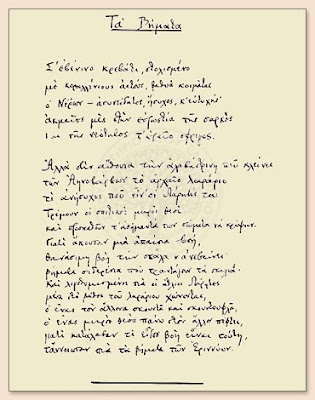 Τὰ Βήματα
Σ' ἐβένινο κρεβάτι, στολισμένο
μὲ κοραλλένιους ἀετούς, βαθυὰ κοιμᾶται
ὁ Νέρων – ἀσυνείδητος, ἥσυχος, κ' εὐτυχής·
ἀκμαῖος μὲς στὴν εὐρωστία τῆς σαρκὸς
καὶ τῆς νεότητος τ' ὡραῖο σφρίγος.
Ἀλλὰ στὴν αἴθουσα τὴν ἀλαβάστρινη ποῦ κλείνει
τῶν Ἀηνοβάρβων τὸ ἀρχαῖο λαράριο
τί ἀνήσυχοι ποῦ εἶν' οἱ Λάρητές του
Τρέμουν οἱ σπιτικοὶ μικροὶ θεοὶ
καὶ προσπαθοῦν τ' ἀσήμαντά των σώματα νὰ κρύψουν.
Γιατὶ ἄκουσαν μιὰ ἀπαίσια βοή,
θανάσιμη βοὴ τὴν σκάλα ν' ἀνεβαίνει·
βήματα σιδερένια ποῦ τραντάζουν τὰ σκαλιά.
Καὶ λιγοθυμισμένοι οἱ ἄθλιοι Λάρητες
μέσα στὸ βάθος τοῦ λαράριου χώνονται,
ὁ ἕνας τὸν ἄλλονα σκουντᾶ καὶ σκουντουφλᾶ,
ὁ ἕνας μικρὸς θεὸς πάνω στὸν ἄλλον πέφτει,
γιατὶ κατάλαβαν τί εἶδος βοὴ εἶναι τούτη,
τἄνοιωσαν πιὰ τὰ βήματα τῶν Ἐριννύων.